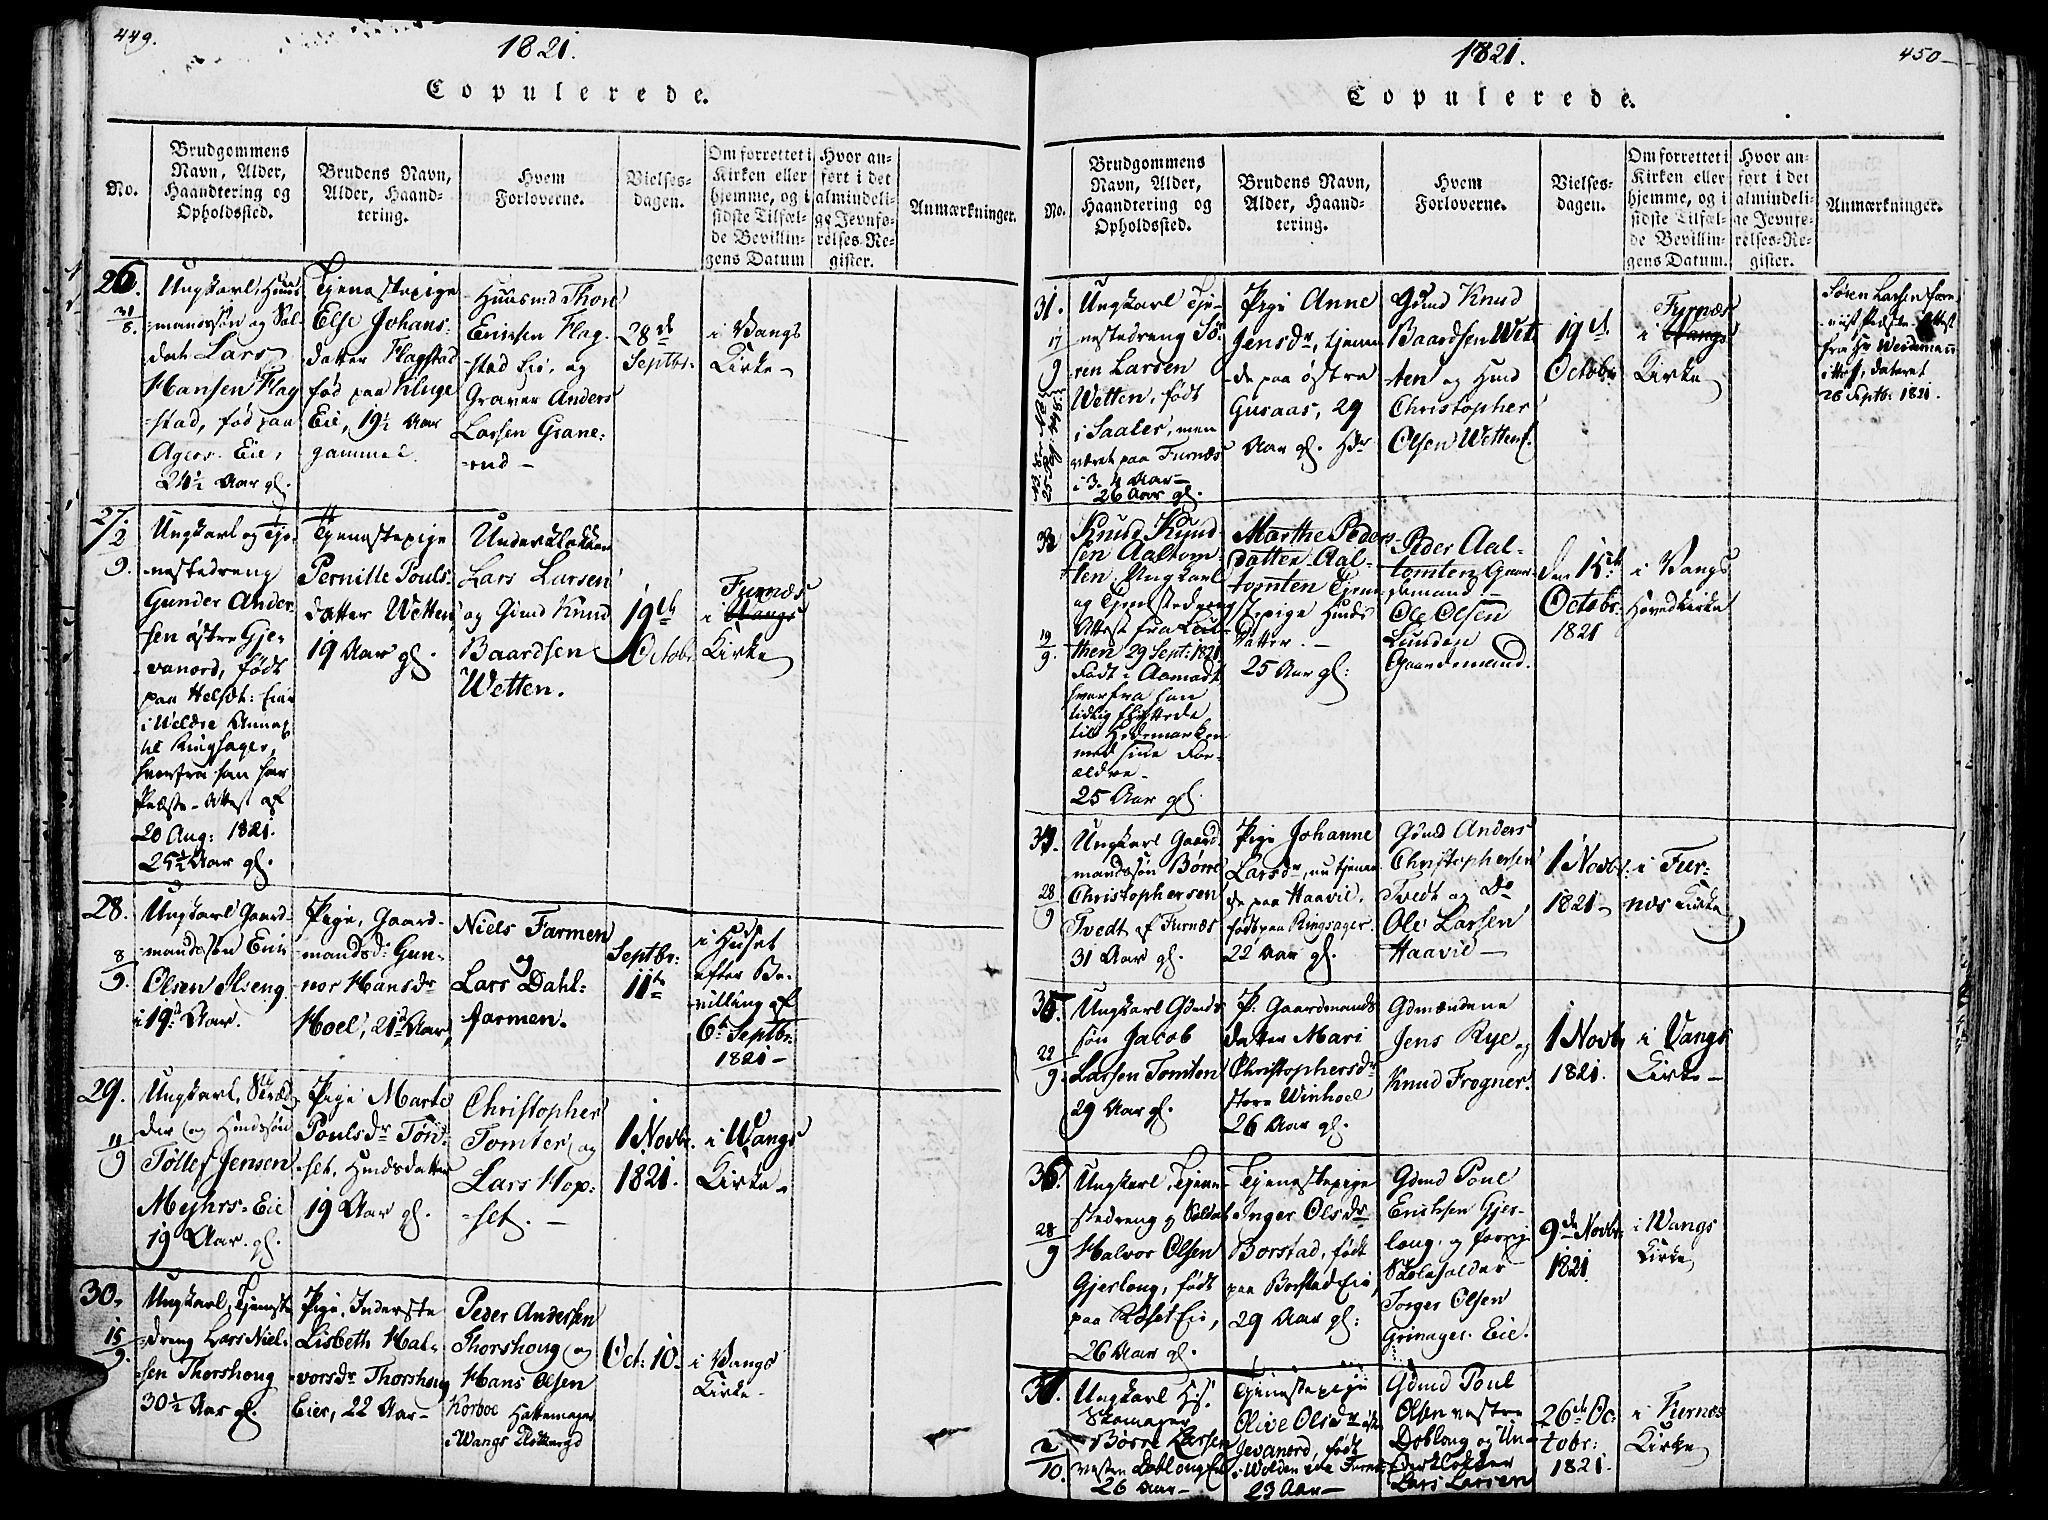 449.
1821.
Copulerede.
No.
Brudgommens Navn, Alder, Haandtering og Opholdssted.
Brudens Navn, Alder, Haandtering.
Hvem Forloverne.
Vielsesdagen.
Om forrettet i Kirken eller hjemme, og i sidste Tilfælde Bevillingens Datum
Hvor anført i det almindelige Jevnførelses-Register.
Anmærkninger.
26.
31/8.
Ungkarl, Huus-
mandssøn og Sol-
dat Lars
Hansen Flag-
stad, fød paa
Agers Eie,
24½ Aar gl.
Tjenestepige
Else Johans-
datter Flagstad
fød paa Kluge
Eie, 19½ Aar
gammel.
Huusmd Thor
Erichsen Flag-
stad Eie, og
Graver Anders
Larsen Grane-
rud
28de
Septbr.
i Vangs
Kirke
27.
2/9.
Ungkarl og Tje-
nestedreng
Gunder Ander-
sen østre Gje-
vanord, født
paa Helset: Eie
i Veldre Annex
til Ringsager,
hvorfra han har
Præste-Attest af
20 Aug: 1821.
25½ Aar gl.
Tjenestepige
Pernille Pouls-
datter Wetten,
19 Aar gl.
Underklokker
Lars Larsen
og Gmd Knud
Baardsen
Wetten.
19de
Octobr.
Furnæs
i Vangs
Kirke
28.
8/9.
Ungkarl Gaard-
mandssøn Erik
Olsen Ilseng
i 19de Aar.
Pige, Gaard-
mandsd: Gun-
nor Hansdr
Hoel, 21de Aar
Niels Farmen
og
Lars Dahl-
farmen.
Septbr:
11te
i Huset
efter Be-
villing af
6te Septbr:
1821
29.
11/9
Ungkarl, Skræd-
der og Hmdssøn
Tollef Jensen
Mejhrs-Eie
19 Aar. gl.
Pige Marte
Poulsdr Tøn-
set, Hmdsdatter
19 Aar gl.
Christopher
Tomter og
Lars Hop-
set.
1 Novbr.
1821.
i Wangs
Kirke
30.
15/9.
Ungkarl, Tjeneste-
dreng Lars Niel-
sen Thorshoug
30½ Aar gl.
Pige, Inderste
Lisbeth Hal-
vorsdr Thorshoug
Eier, 22 Aar
Peder Andersen
Thorshoug og
Hans Olsen
Korboe Hattemager
i Wangs
Oct: 10.
i Vangs
Kirke
450
1821.
Copulerede.
No.
Brudgommens Navn, Alder, Haandtering og Opholdssted.
Brudens Navn, Alder, Haandtering.
Hvem Forloverne.
Vielsesdagen.
Om forrettet i Kirken eller hjemme, og i sidste Tilfælde Bevillingens Datum.
Hvor anført i det almindelige Jevnførelses-Register.
Anmærkninger.
31.
17/9
Ungkarl Tje-
nestedreng Sø-
ren Larsen
Wetten, født
i Saaler, men
været paa Furnæs
i 3. 4 Aar
26 Aar gl.
Pige Anne
Jensdr, tjenen-
de paa østre
Gusaas, 29
Aar gl.
Gmd Knud
Baardsen Wet-
ten og Hmd
Christopher
Olsen Wetten.
19de
Octobr.
Furnæs
i Vangs
Kirke
Søren Larsen
fra Hr
dateret
26 Septbr: 1821.
32
19/9.
Knud Knud-
sen Aaltom-
ten, Ungkarl
og Tjenestedreng
Attest fra
29 Sept: 1821
Født i Aamodt
hvorfra han
tidlig flyttede
til Hedemarken
med sine For-
ældre
25 Aar gl.
Marthe Peders-
datter Aal-
tomten Tjene-
stepige Hmds
Datter.
25 Aar gl:
Peder Aal-
tomten Gaar-
demand
Ole Olsen
Gaardemand.
den 15de
Octobr:
1821
i Vangs
Hovedkirke
28/9
Ungkarl Gaard-
mandssøn Børre
Christophersen
Tvedt af Furnæs
31 Aar gl.
Pige Johanne
Larsdr, nu tjenen-
de paa Haavie,
født paa Ringsager
22 Aar gl.
Gmd Anders
Christophersen
Tvedt og Do
Ole Larsen
Haavie
1 Novbr:
1821
i Fur-
næs Kirke
22/9
Ungkarl Gdmds
søn Jacob
Larsen Tomten
29 Aar gl.
P: Gaardmands
datter Mari
Christophersdr
store Winhoel
26 Aar gl.
Gdmændene
Jens Rye og
Knud Frogner.
1 Novbr
1821.
i Vangs
Kirke
36.
28/9
Ungkarl, Tjene-
stedreng og Soldat
Halvor Olsen
Gjeslong, født
paa Eie,
26 Aar gl.
Tjenestepige
Inger Olsdr
Borstad, født
paa Borstad Eie,
29 Aar gl:
Gdmd Poul
Erichsen Gjes-
long, og forrige
Skoleholder
Torger Olsen
Grimager Eie.
9de Novbr.
1821.
i Wangs
Kirke
2/10.
Ungkarl
Skomager
Børre Larsen
vesten Dobloug Eie
26 Aar
Tjenestepige
Olive Olsdr
Jevanord, født
23 Aar
Gdmd Poul
Olsen vestre
Dobloug og Un-
derklokker
Lars Larsen
26de Oc-
tobr:
1821.
i Furnæs
Kirke